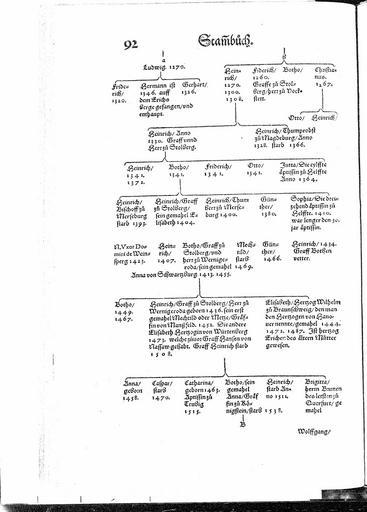 92
Stambuch.
a
Ludwig. 1270.
Fride-
rich/
1320.
Hermann ist
1346. auff
dem Erichs
berge gefangen/ und
enthaupt.
Gerhart/
1326.
Hein-
rich/
1270.
1300.
1308.
Friderich/
1260.
Graffe zu Stol-
berg/ herr zu Vock-
stein.
Botho/
Christia-
nus.
1267.
Otto/
Heinrich/
Heinrich/ Anno
1330. Graff unnd
Herr zu Stolberg.
Heinrich/ Thumprobst
zu Magdeburg/ Anno
1328. starb 1366.
Heinrich/
1341.
1372.
Botho/
1341.
Friderich/
1341.
Otto/
1341.
Jutta/ Die eylffte
Äptissin zu Helffte
Anno 1364.
Heinrich/
Bischoff zu
Merseburg
starb 1393.
Heinrich/ Graff
zu Stolberg/
sein gemahel E-
lisabeth 1404.
Heinrich/ Thum
herr zu Merse-
burg 1400.
Gün-
ther/
1380.
Sophia/ Die drey-
zehend äptissin zu
Helffte. 1410.
war lenger den 30.
jar äptissin.
N. Uxor Do-
mini de Wein-
sperg 1423.
Hein-
rich/
1407.
Botho/ Graff zu
Stolberg/ und
herr zu Wernige-
roda/ sein gemahel
Anna von Schwartzburg 1413. 1455.
Mech-
tild/
starb
1469.
Gün-
ther/
1466.
Heinrich/ 1434.
Graff Bothen
vetter.
Botho/
1449.
1467.
Heinrich/ Graff zu Stolberg/ Herr zu
Wernigeroda geborn 1436. sein erst
gemahel Mechtild oder Metze/ Gräf-
fin von Manßfeld. 1452. Die andere
Elisabeth Hertzogin von Würtenberg
1473. welche zuvor Graff Hansen von
Nassaw gehabt. Graff Heinrich starb
1508.
Elisabeth/ Hertzog Wilhelm
zu Braunschweig/ den man
den Hertzogen von Hano-
ver nennte/ gemahel 1444.
1472. 1487. Ist hertzog
Erichs des ältern Mutter
gewesen.
Anna/
geborn
1458.
Caspar/
starb
1470.
Catharina/
geborn 1463.
Äptissin zu
1515.
Botho/ sein
gemahel
Anna/ Gräf
fin zu Kö-
nigstein/ starb 1538.
Heinrich/
starb An-
no 1511.
Brigitta/
herrn Brunen
des letsten zu
Querfurt/ ge
mahel
B
Wolffgang/